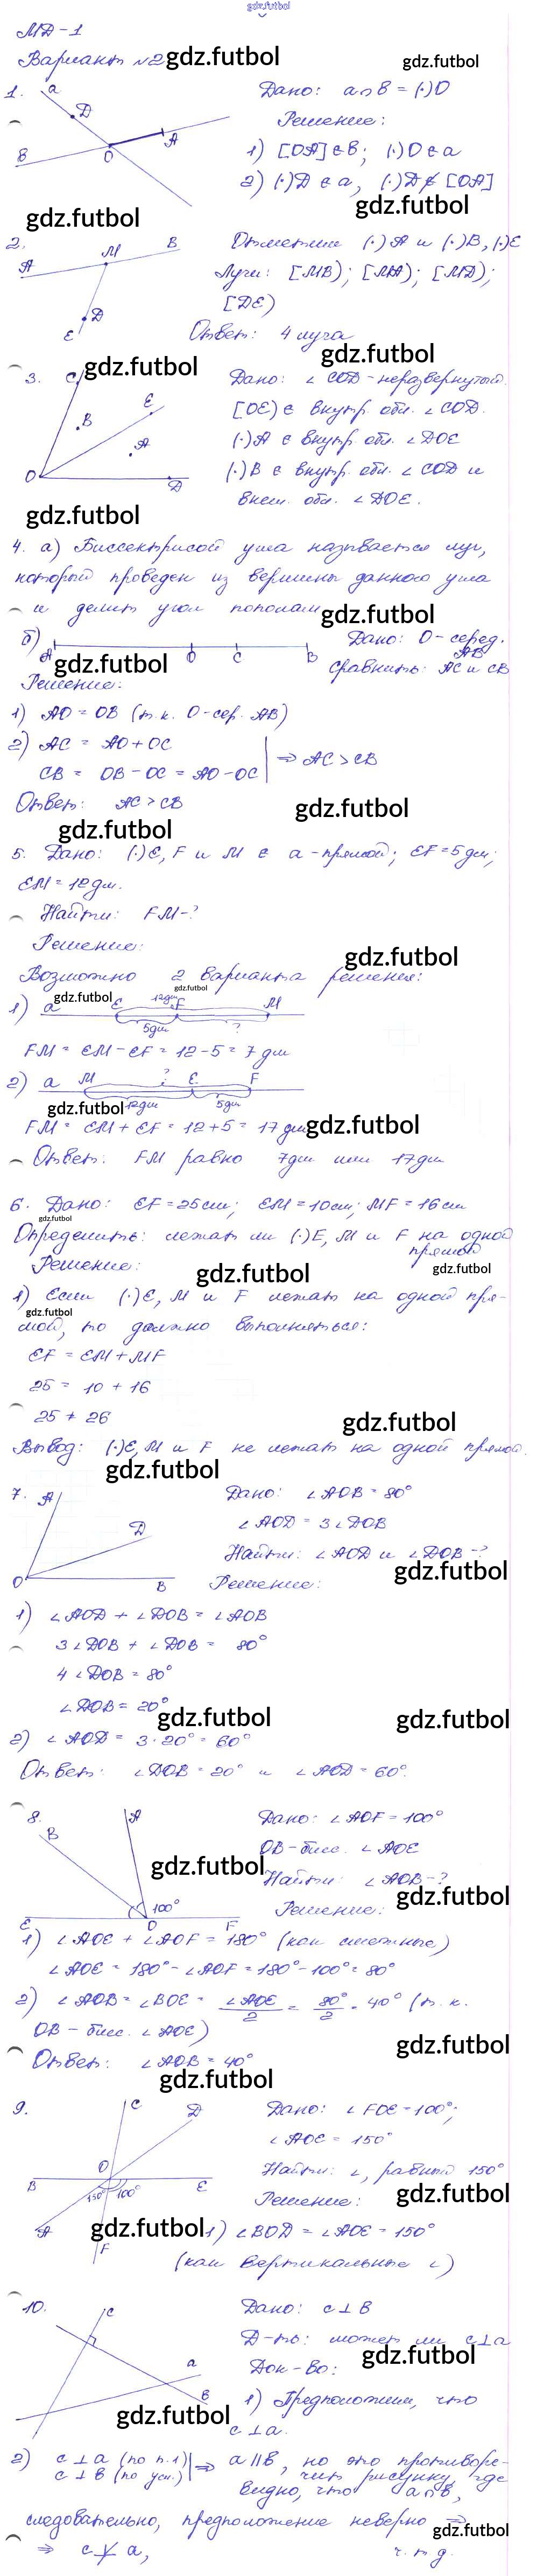 gdz.futbol
МД-1
Вариант №2 gdz.futbol
gdz.futbol
1. a
D
A
B
O
Дано: a∩в = (·)O
Решение:
1) [OA] ∈ в; (·)O ∈ a
2) (·)D ∈ a, (·)D ∉ [OA]
gdz.futbol
gdz.futbol
2. A M B
D
E
Отметим (·)A и (·)B, (·)E
Лучи: [MB); [MA); [MD);
[DE)
Ответ: 4 луча
gdz.futbol
gdz.futbol
3. C
B E
A
O D
Дано: ∠COD - неразвернутый.
[OE) ∈ внутр. обл. ∠COD.
(·)A ∈ внутр. обл. ∠DOE
(·)B ∈ внутр. обл. ∠COD и
внеш. обл. ∠DOE.
gdz.futbol
4. а) Биссектрисой угла называется луч,
который проведен из вершины данного угла
и делит угол пополам
gdz.futbol
б) A O C B
Дано: O - серед.
AB
gdz.futbol
Сравнить: AC и CB
Решение:
1) AO = OB (т.к. O-сер. AB)
2) AC = AO + OC
CB = OB - OC = AO - OC
⇒ AC > CB
Ответ: AC > CB
gdz.futbol
gdz.futbol
5. Дано: (·)E, F и M ∈ a - прямой; EF = 5 дм;
EM = 12 дм.
Найти: FM - ?
Решение:
gdz.futbol
Возможно 2 варианта решения:
gdz.futbol
1) a gdz.futbol E 12дм F M
5дм ?
FM = EM - EF = 12 - 5 = 7 дм
2) a M ? E F
gdz.futbol 12дм 5дм
FM = EM + EF = 12 + 5 = 17 дм gdz.futbol
Ответ: FM равно 7дм или 17дм
6. Дано: EF = 25 см; EM = 10 см; MF = 16 см
gdz.futbol
Определить: лежат ли (·)E, M и F на одной
прямой
Решение:
gdz.futbol
gdz.futbol
1) Если (·)E, M и F лежат на одной пря-
gdz.futbol
мой, то должно выполняться:
EF = EM + MF
25 = 10 + 16
25 ≠ 26
gdz.futbol
Вывод: (·)E, M и F не лежат на одной прямой.
gdz.futbol
7. A
D
O B
Дано: ∠AOB = 80°
∠AOD = 3∠DOB
Найти: ∠AOD и ∠DOB - ?
gdz.futbol
Решение:
1) ∠AOD + ∠DOB = ∠AOB
3∠DOB + ∠DOB = 80°
4∠DOB = 80°
∠DOB = 20°
gdz.futbol
gdz.futbol
2) ∠AOD = 3 · 20° = 60°
Ответ: ∠DOB = 20° и ∠AOD = 60°.
8. B A
100°
E O F
Дано: ∠AOF = 100°
OB - бисс. ∠AOE
gdz.futbol
Найти: ∠AOB - ?
gdz.futbol
Решение:
1) ∠AOE + ∠AOF = 180° (как смежные)
∠AOE = 180° - ∠AOF = 180° - 100° = 80°
2) ∠AOB = ∠BOE = ∠AOE/2 = 80°/2 = 40° (т.к.
OB - бисс. ∠AOE)
gdz.futbol
Ответ: ∠AOB = 40°
gdz.futbol
9. C D
O
B E
150° 100°
A
F
Дано: ∠FOE = 100°;
∠AOE = 150°
Найти: ∠, равный 150°
gdz.futbol
Решение:
gdz.futbol
1) ∠BOD = ∠AOE = 150°
(как вертикальные ∠)
10. c
a
в
Дано: c ⊥ в
Д-ть: может ли c ⊥ a
gdz.futbol
Док-во:
1) Предположим, что
gdz.futbol
c ⊥ a.
2) c ⊥ a (по п.1)
c ⊥ в (по усл.)
⇒ a ∥ в, но это противоре-
чит рисунку, где
видно, что a∩в,
следовательно, предположение неверно ⇒
gdz.futbol
⇒ c ⊥̸ a,
ч.т.д.